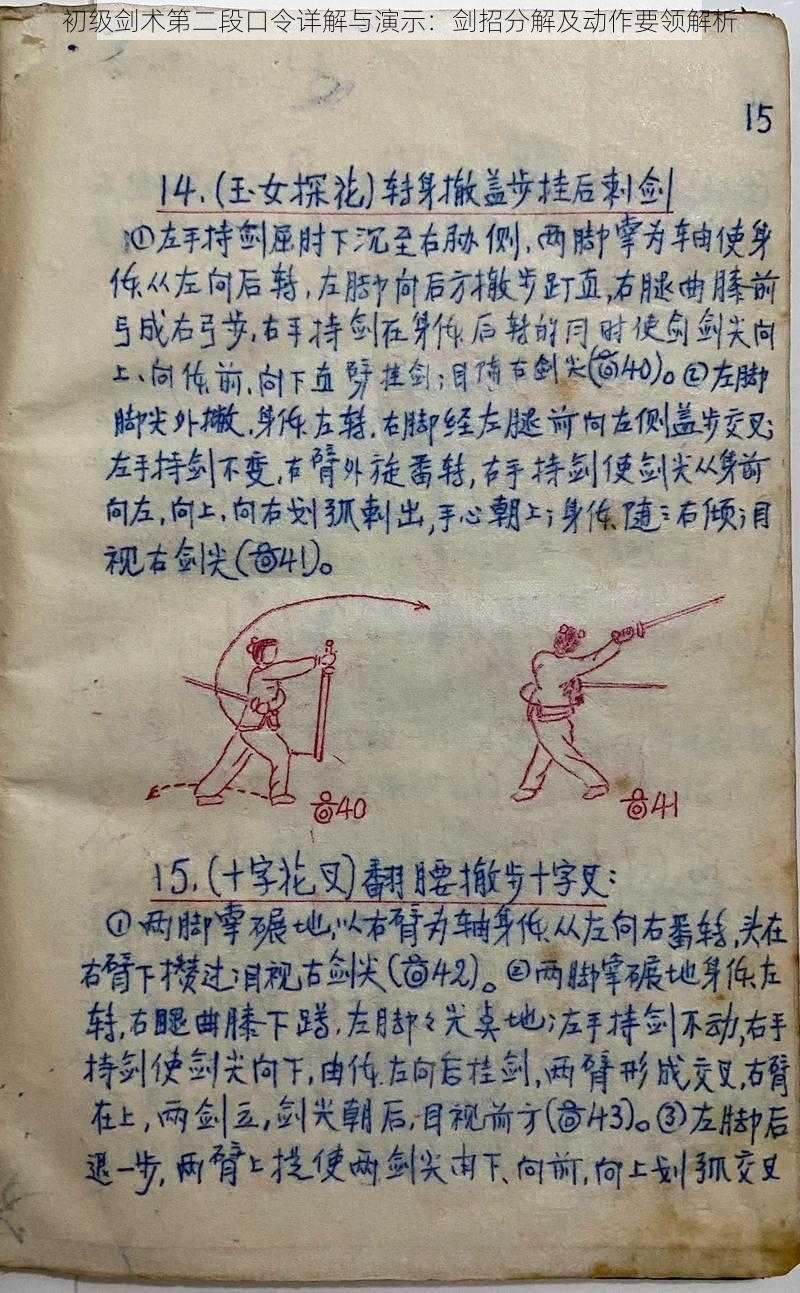 初级剑术第二段口令详解与演示：剑招分解及动作要领解析
15
14.(玉女探花)转身撤盖步挂后刺剑
①左手持剑屈肘下沉至右胁侧,两脚掌为车由使身
体从左向后转,左脚向后方撤步趴直,右腿曲膝前
弓成右弓步,右手持剑在身体后转的同时使剑剑尖向
上、向体前、向下直臂挂剑;目随右剑尖(图40)。②左脚
脚尖外撇,身体左转,右脚经左腿前向左侧盖步交叉;
左手持剑不变,右臂外旋番转,右手持剑使剑尖从身前
向左,向上,向右划弧刺出,手心朝上;身体随之右倾;目
视右剑尖(图41)。
图40
图41
15.(十字花叉)翻腰撤步十字叉:
①两脚掌碾地,以右臂为轴身体从左向右番转,头在
右臂下攒过;目视右剑尖(图42)。②两脚掌碾地身体左
转,右腿曲膝下蹲,左脚々尖点地;左手持剑不动,右手
持剑使剑尖向下,由体左向后挂剑,两臂形成交叉,右臂
在上,两剑立,剑尖朝后,目视前方(图43)。③左脚后
退一步,两臂上提使两剑尖由下、向前,向上划弧交叉